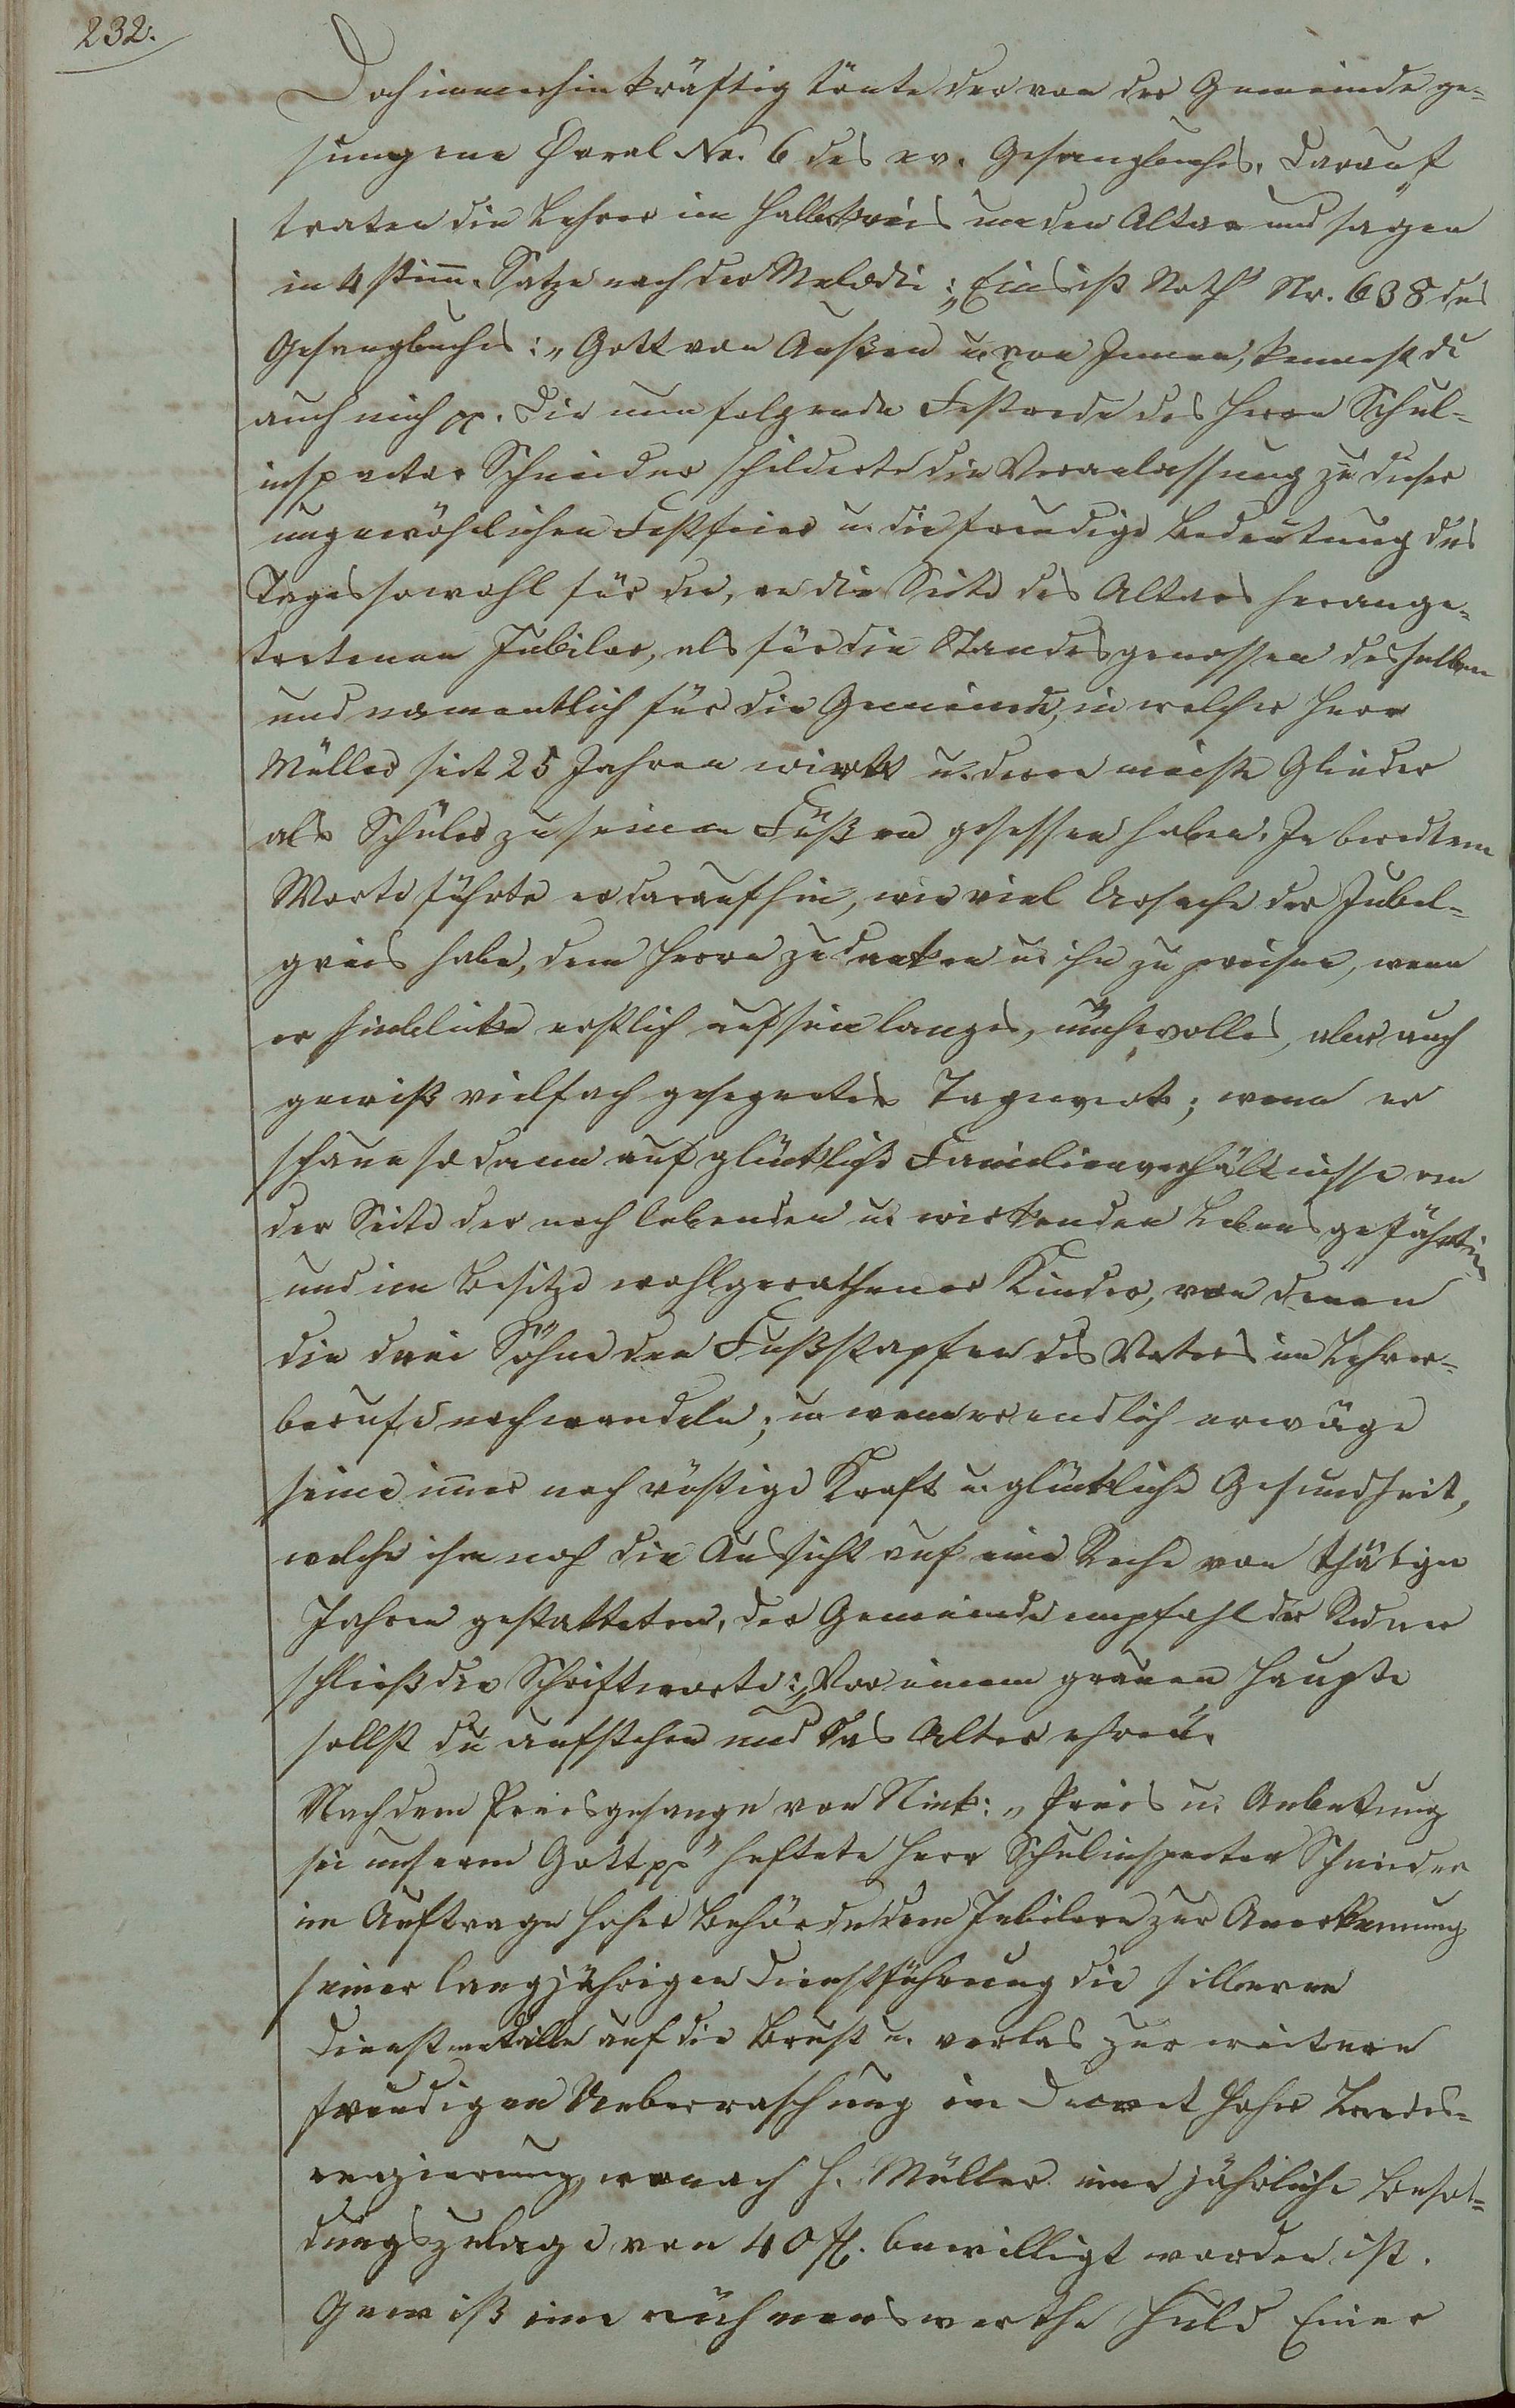 232.
Doch immerhin kräftig tönte der von der Gemeinde ge-
sungene Choral No. 6 des ev. Gesangbuches. Darauf
traten die Lehrer im Halbkreis um den Altar und sangen
in 4 stimm. Satze nach der Melodie: „Eins ist Noth" Nr. 638 des
Gesangbuches: „Gott von Außen u. von Innen, kennest du
auch mich pp. Die nun folgende Festrede des Herrn Schul-
inspector Schneider schilderte die Veranlassung zu dieser
ungewöhnlichen Festfeier u. die freudige Bedeutung des
Tages sowohl für den, an die Seite des Altars herange-
tretenen Jubilar, als für die Standesgenossen desselben
und namentlich für die Gemeinde, in welcher Herr
Müller seit 25 Jahren wirkt u. deren meiste Glieder
als Schüler zu seinen Füßen gesessen haben. In beredtem
Worte führte er darauf hin, wie viel Ursache der Jubel-
greis habe, dem Herrn zu danken u. ihn zu preisen, wenn
er hinblicke erstlich auf sein langes, mühevolles, aber auch
gewiß vielfach gesegnetes Tagewerk; wenn er
schaue sodann auf glückliche Familienverhältnisse an
der Seite der noch lebenden u. wirkenden Lebensgefährtin
und im Besitze wohlgerathener Kinder, von denen
die drei Söhne den Fußstapfen des Vaters im Lehrer-
berufe nachwandeln; u. wenn er endlich erwäge
seine immer noch rüstige Kraft u. glückliche Gesundheit,
welche ihm noch die Aussicht auf eine Reihe von thätigen
Jahren gestatteten. Der Gemeinde empfahl der Redner
schließ die Schriftworte: „Vor einem grauen Haupte
sollst du aufstehen und das Alter ehren".
Nach dem Preisgesange von Rink: „Preis u. Anbetung
sei unserm Gott pp" heftete Herr Schulinspector Schneider
im Auftrage hoher Behörde dem Jubilare zur Anerkennung
seiner langjährigen Dienstführung die silberne
Dienstmedaille auf die Brust u. verlas zur weitern
freudigen Ueberraschung ein Decret hoher Landes-
regierung, wonach H. Müller eine jährliche Besol-
dungszulage von 40 fl. bewilligt worden ist.
Gewiß eine rühmenswerthe Huld Einer